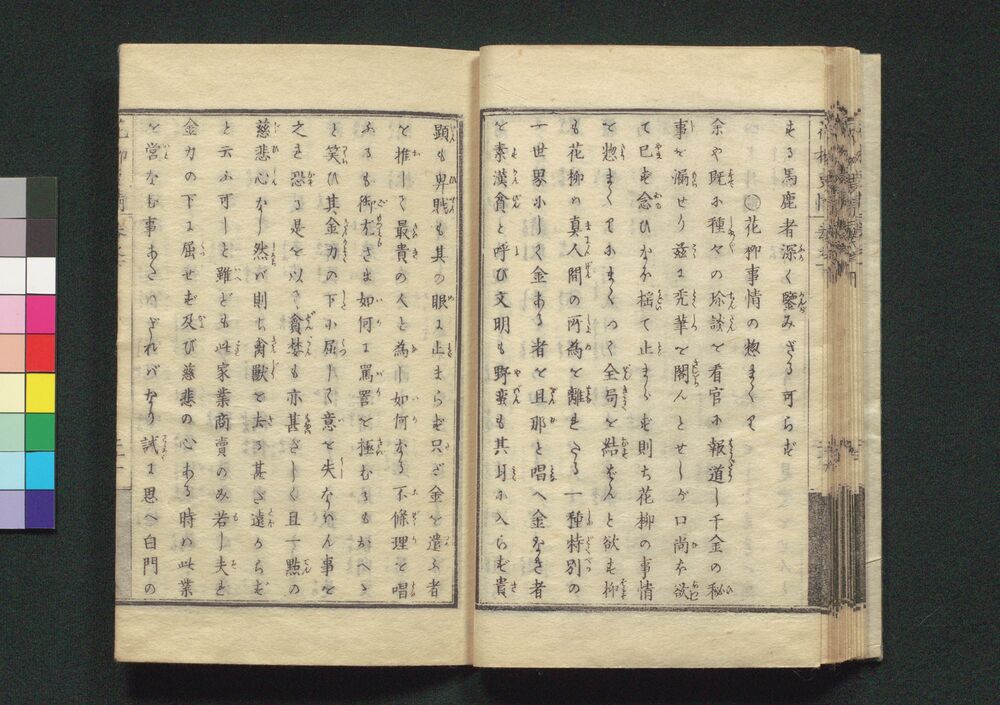 する馬鹿者深く鑒みざる可らず
花柳事情の惣まくり
余や既に種々の珍談を看官に報道し千金の秘
事を漏せり茲に禿筆を閣んとせしが口尚ほ欲
て已ず念ひなほ揺て止まらず則ち花柳の事情
を惣まくりにまくつて全局を結ばんと欲す抑
も花柳の真人間の所為を離れたる一種特別の
一世界にして金ある者を旦那と唱へ金なき者
を素漢貧と呼び文明も野蛮も其耳に入らず貴
顕も卑賎も其の眼に止まらず只だ金を遣ふ者
を推して最貴の人と為し如何なる不條理を唱
ふるも御尤さま如何に罵詈を極むるもかへゝ
と笑ひ其金力の下に屈して意を失なはん事を
之れ恐る是を以て貪婪も亦甚だしく且一點の
慈悲心なし然バ則ち禽獣を去る甚だ遠からず
と云ふ可しと雖ども此家業商賣のみ若し夫を
金力の下に屈せず及び慈悲の心ある時ハ此業
を営なむ事あたハざれバなり試に思へ白門の